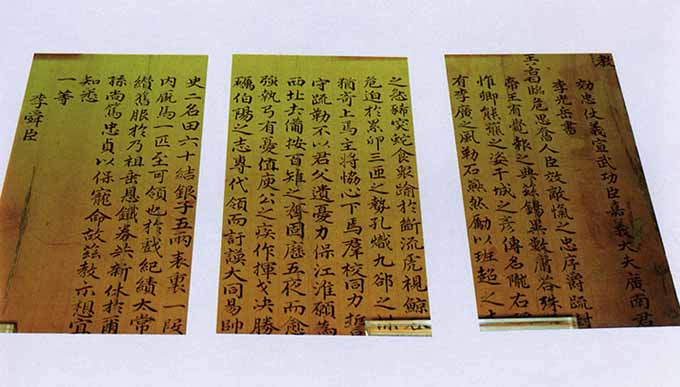 教
効忠仗義宣武功臣嘉義大夫廣南君
李光岳書
臨危忠奮人臣放敵愾之忠序爵疏封
帝王有覺報之典玆錫異數庸答殊
惟卿熊羆之姿干城之彦傳名隴右
有李廣之風勒石燕然勵以班超之
之怒豨突蛇食衆踰於斷流虎視鯨
危迫於累卵三匝之勢孔熾九郤之
猶奇上焉主將恊心下焉羣校同力誓
守疏勒不以君父遺憂力保江淮願為
西北士備按首雉之齊固歷五夜而愈
強執弓有憂値庾公之疾作揮戈決勝
礪伯陽之志專代領而訏謨大同易帥
史二名田六十結銀子五兩表裏一段
内廐馬一匹至可領也於戲紀績太常
纘舊服於乃祖垂恩鐵券訣新休於爾
孫尚篤忠貞以保寵命故玆教示想宜
知悉
一等
李舜臣